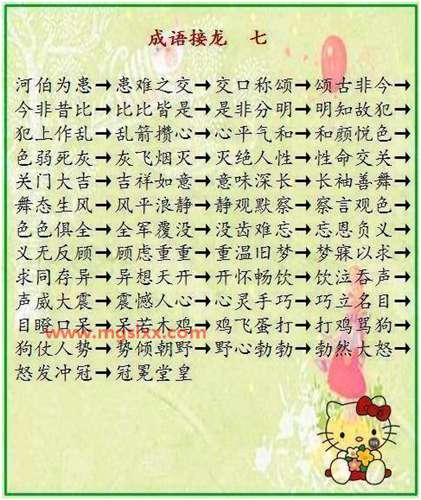 成语接龙 七
河伯为患→患难之交→交口称颂→颂古非今→
今非昔比→比比皆是→是非分明→明知故犯→
犯上作乱→乱箭攒心→心平气和→和颜悦色→
色弱死灰→灰飞烟灭→灭绝人性→性命交关→
关门大吉→吉祥如意→意味深长→长袖善舞→
舞态生风→风平浪静→静观默察→察言观色→
色色俱全→全军覆没→没齿难忘→忘恩负义→
义无反顾→顾虑重重→重温旧梦→梦寐以求→
求同存异→异想天开→开怀畅饮→饮泣吞声→
声威大震→震憾人心→心灵手巧→巧立名目→
目瞪口呆→呆若木鸡→鸡飞蛋打→打鸡骂狗→
www.mgsixx.com
狗仗人势→势倾朝野→野心勃勃→勃然大怒→
怒发冲冠→冠冕堂皇